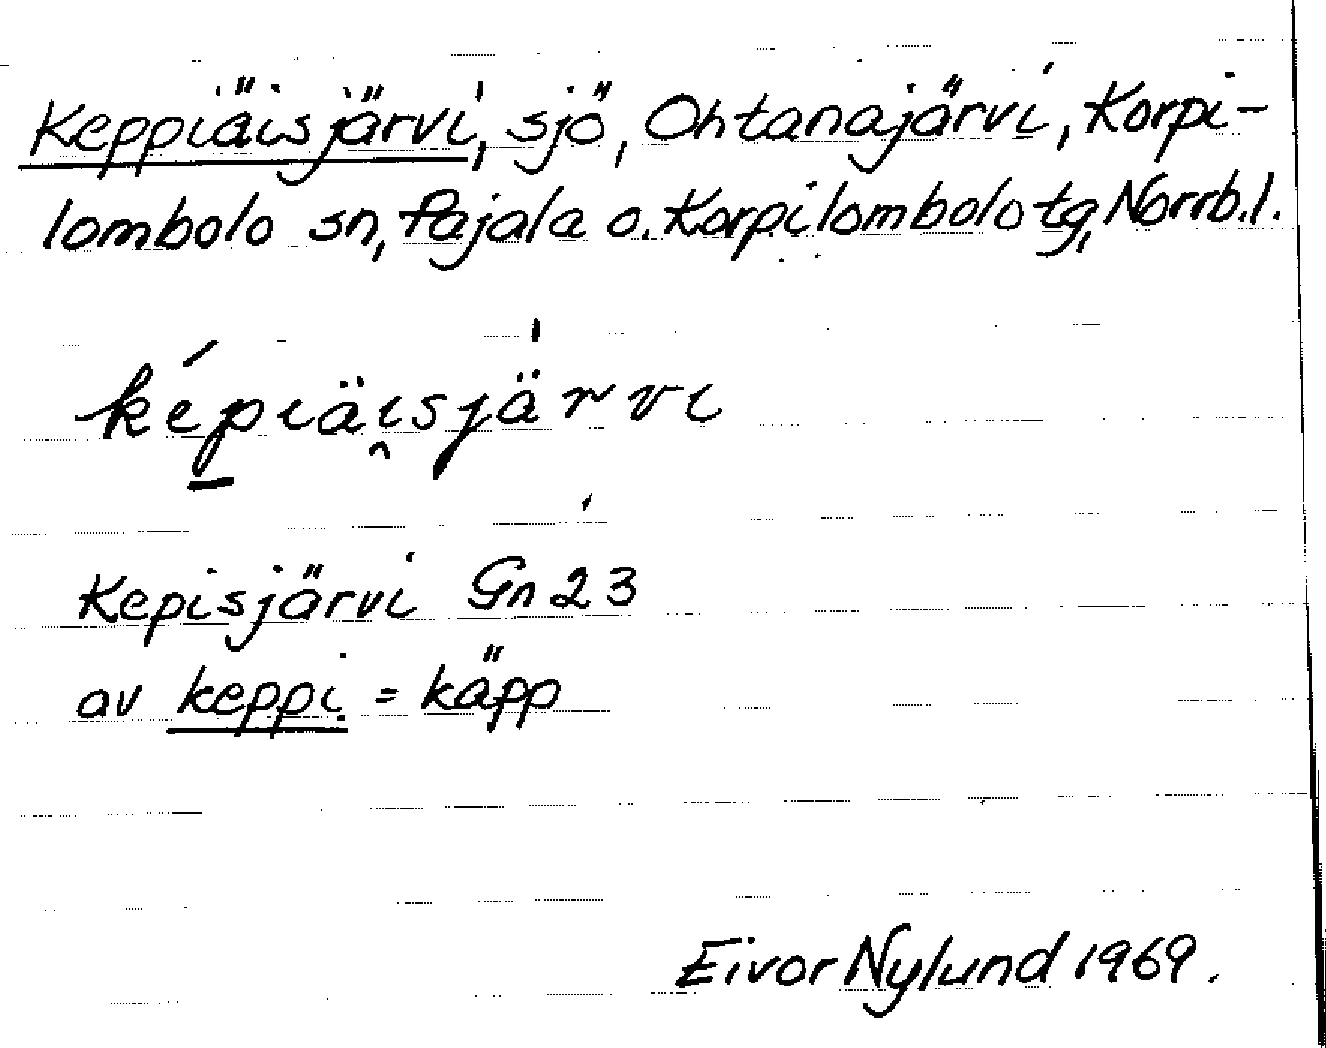 Keppiäisjärvi, sjö, Ohtanajärvi, Korpi-
lombolo sn, Pajala o. Korpilombolo tg, Norrb. l.
ḱep̱iäi̯sjärvi
Kepisjärvi Gn 23
av keppi = käpp
Eivor Nylund 1969.